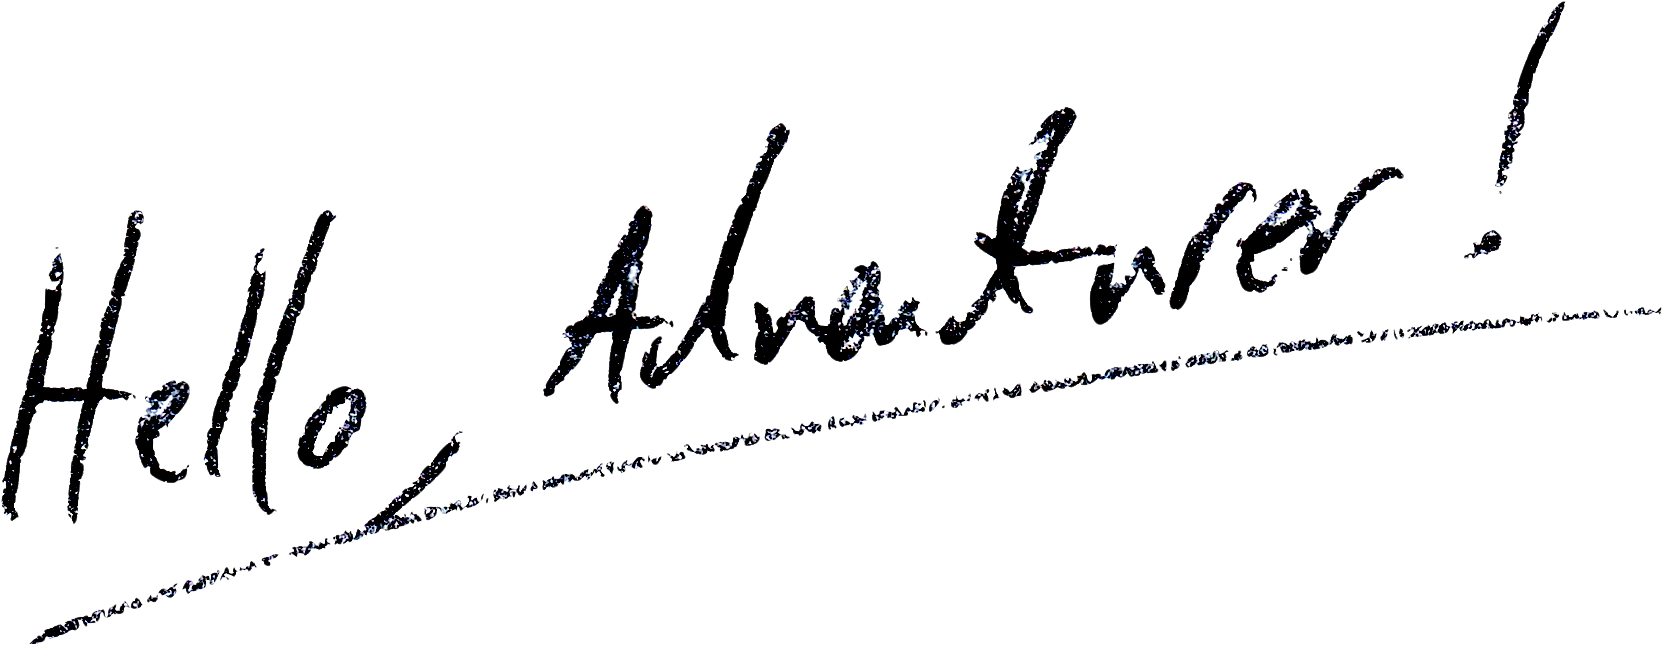 Hello, Adventurer!